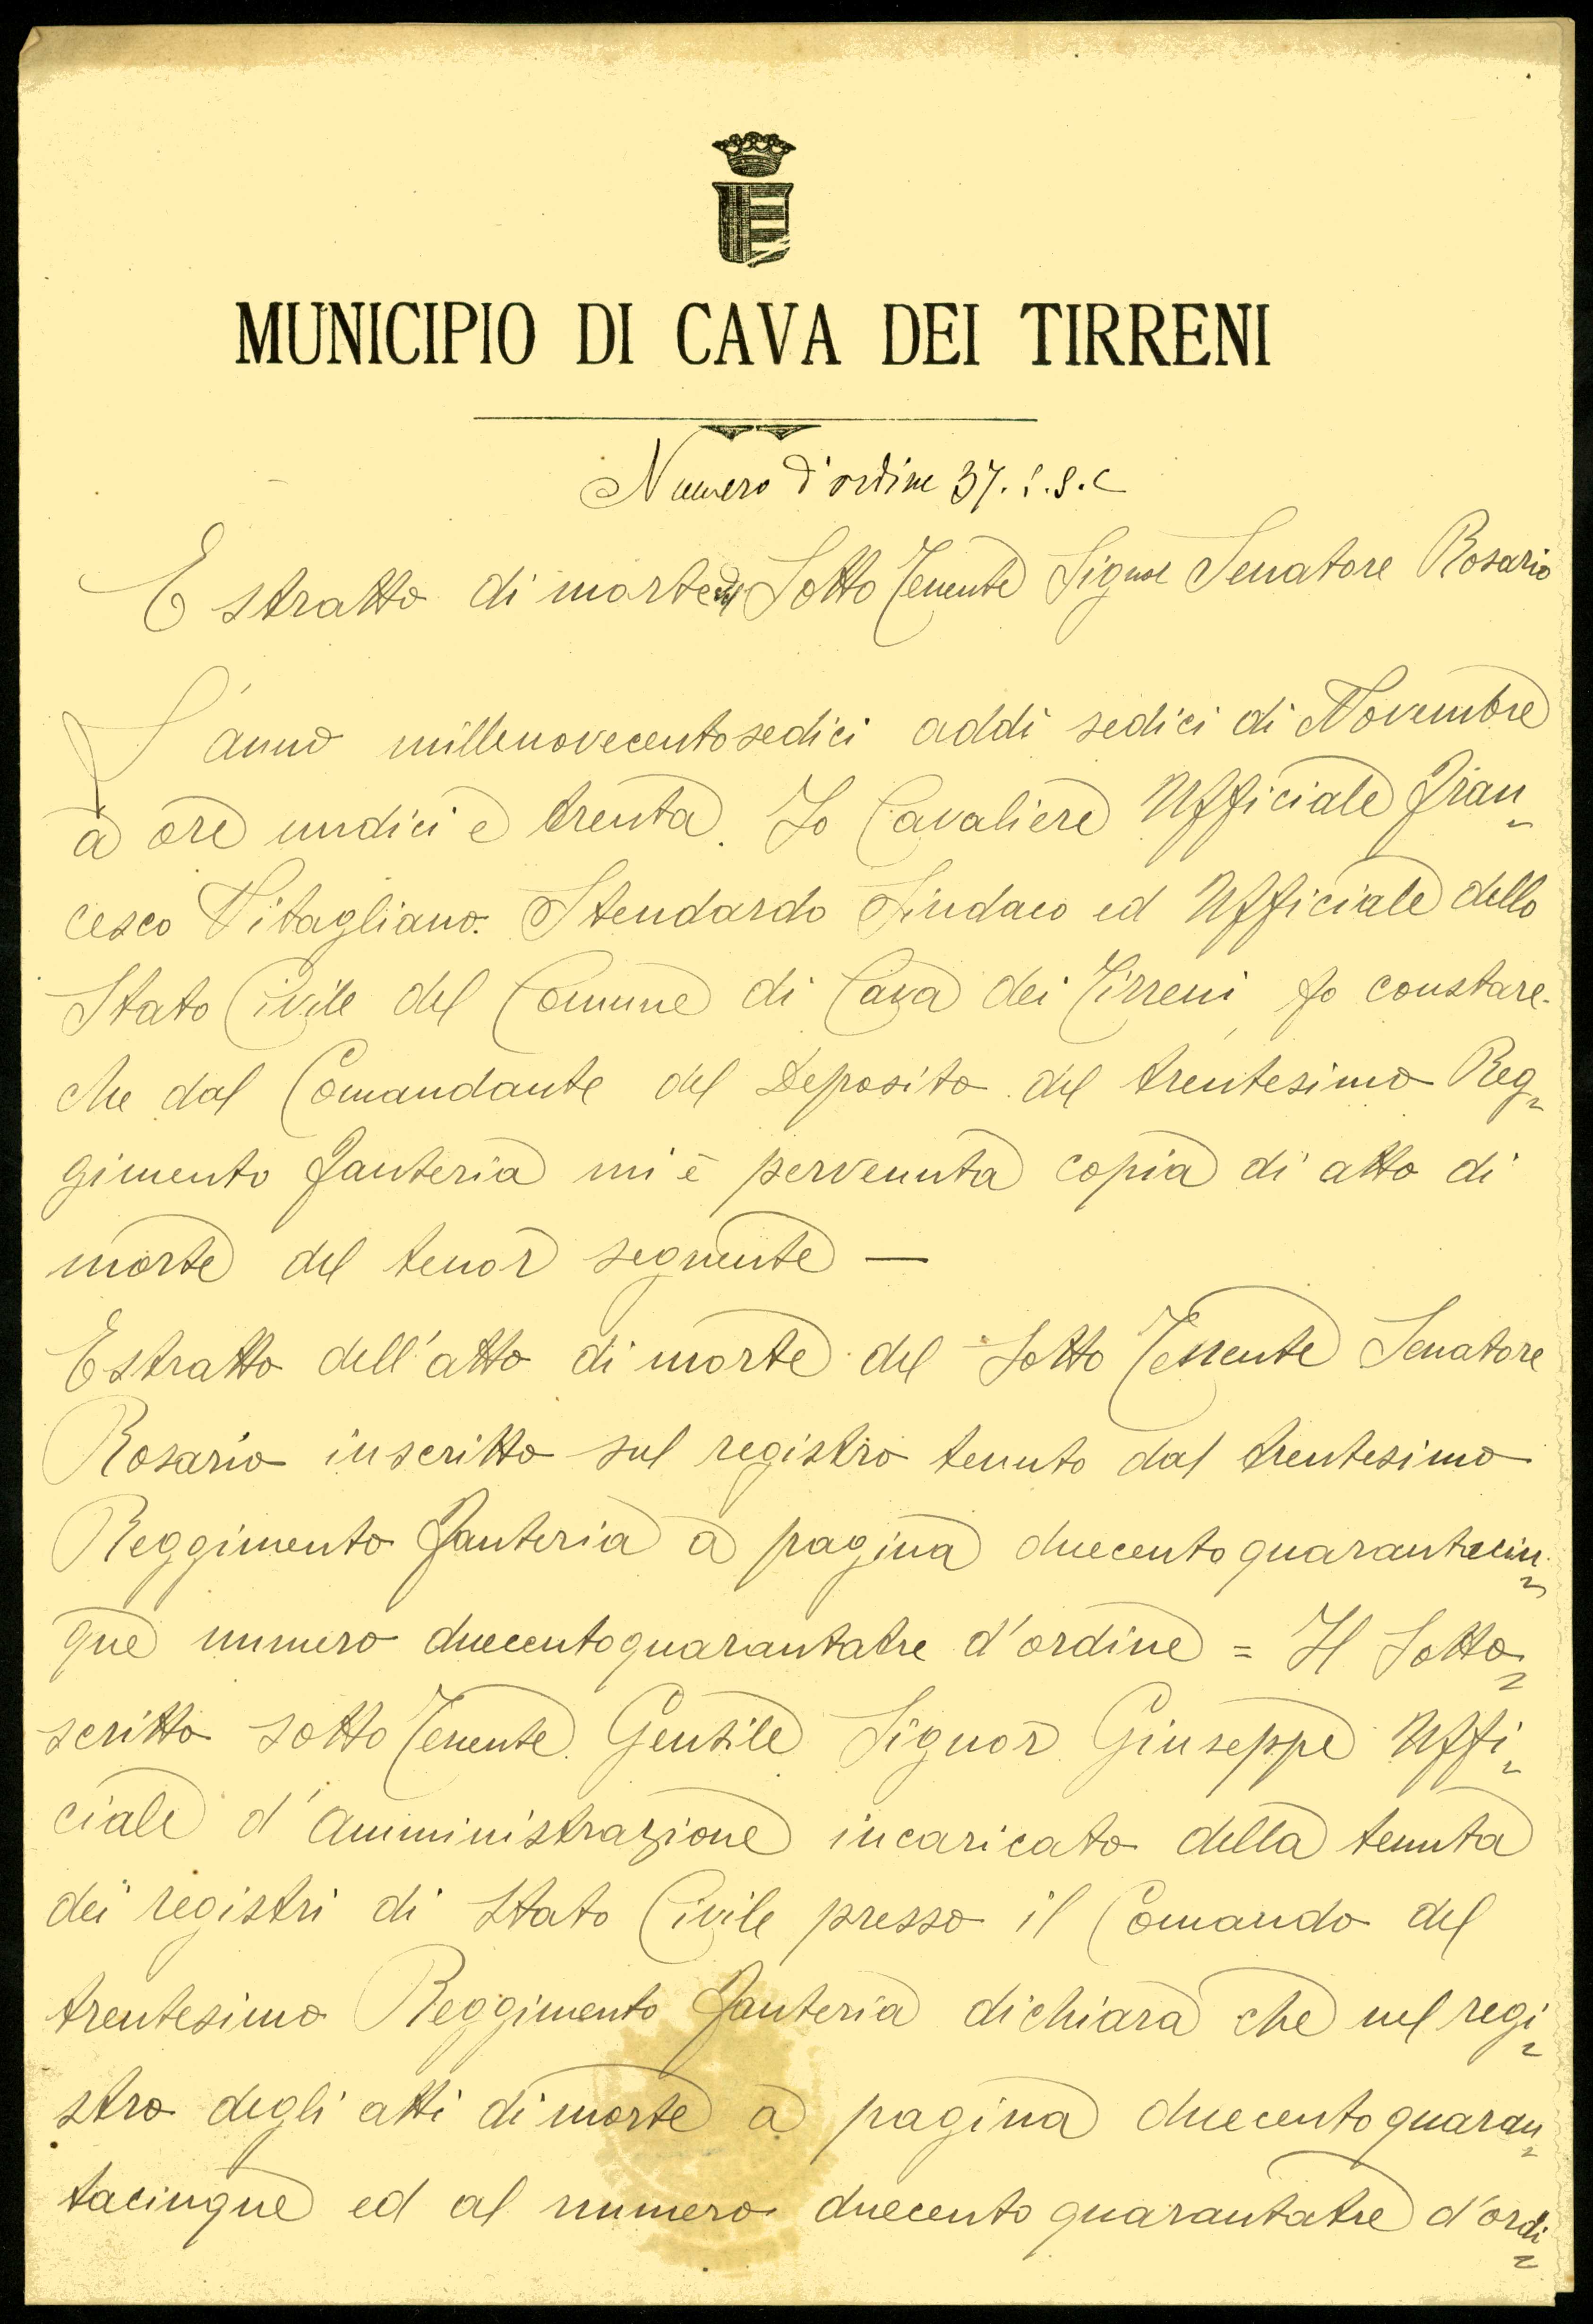 MUNICIPIO DI CAVA DEI TIRRENI
Numero d'ordine 37. P. S. C
Estratto di morte del Sotto Tenente Signor Senatore Rosario
L'anno millenovecentosedici addì sedici di Novembre
a ore undici e trenta. Io Cavaliere Ufficiale Fran=
cesco Vitagliano. Stendardo Sindaco ed Ufficiale dello
Stato Civile del Comune di Cava dei Tirreni, fo constare
che dal Comandante del Deposito del trentesimo Reg=
gimento Fanteria mi è pervenuta copia di atto di
morte del tenor seguente —
Estratto dell'atto di morte del Sotto Tenente Senatore
Rosario inscritto sul registro tenuto dal trentesimo
Reggimento Fanteria a pagina duecentoquarantacin=
que numero duecentoquarantatre d'ordine = Il Sotto=
scritto sotto Tenente Gentile Signor Giuseppe Uffi=
ciale d'Amministrazione incaricato della tenuta
dei registri di Stato Civile presso il Comando del
trentesimo Reggimento Fanteria dichiara che nel regi=
stro degli atti di morte a pagina duecentoquaran=
tacinque ed al numero duecentoquarantatre d'ordi=